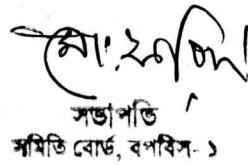 মো: রুহুল
সভাপতি
সমিতি বোর্ড, বপবিস- ১